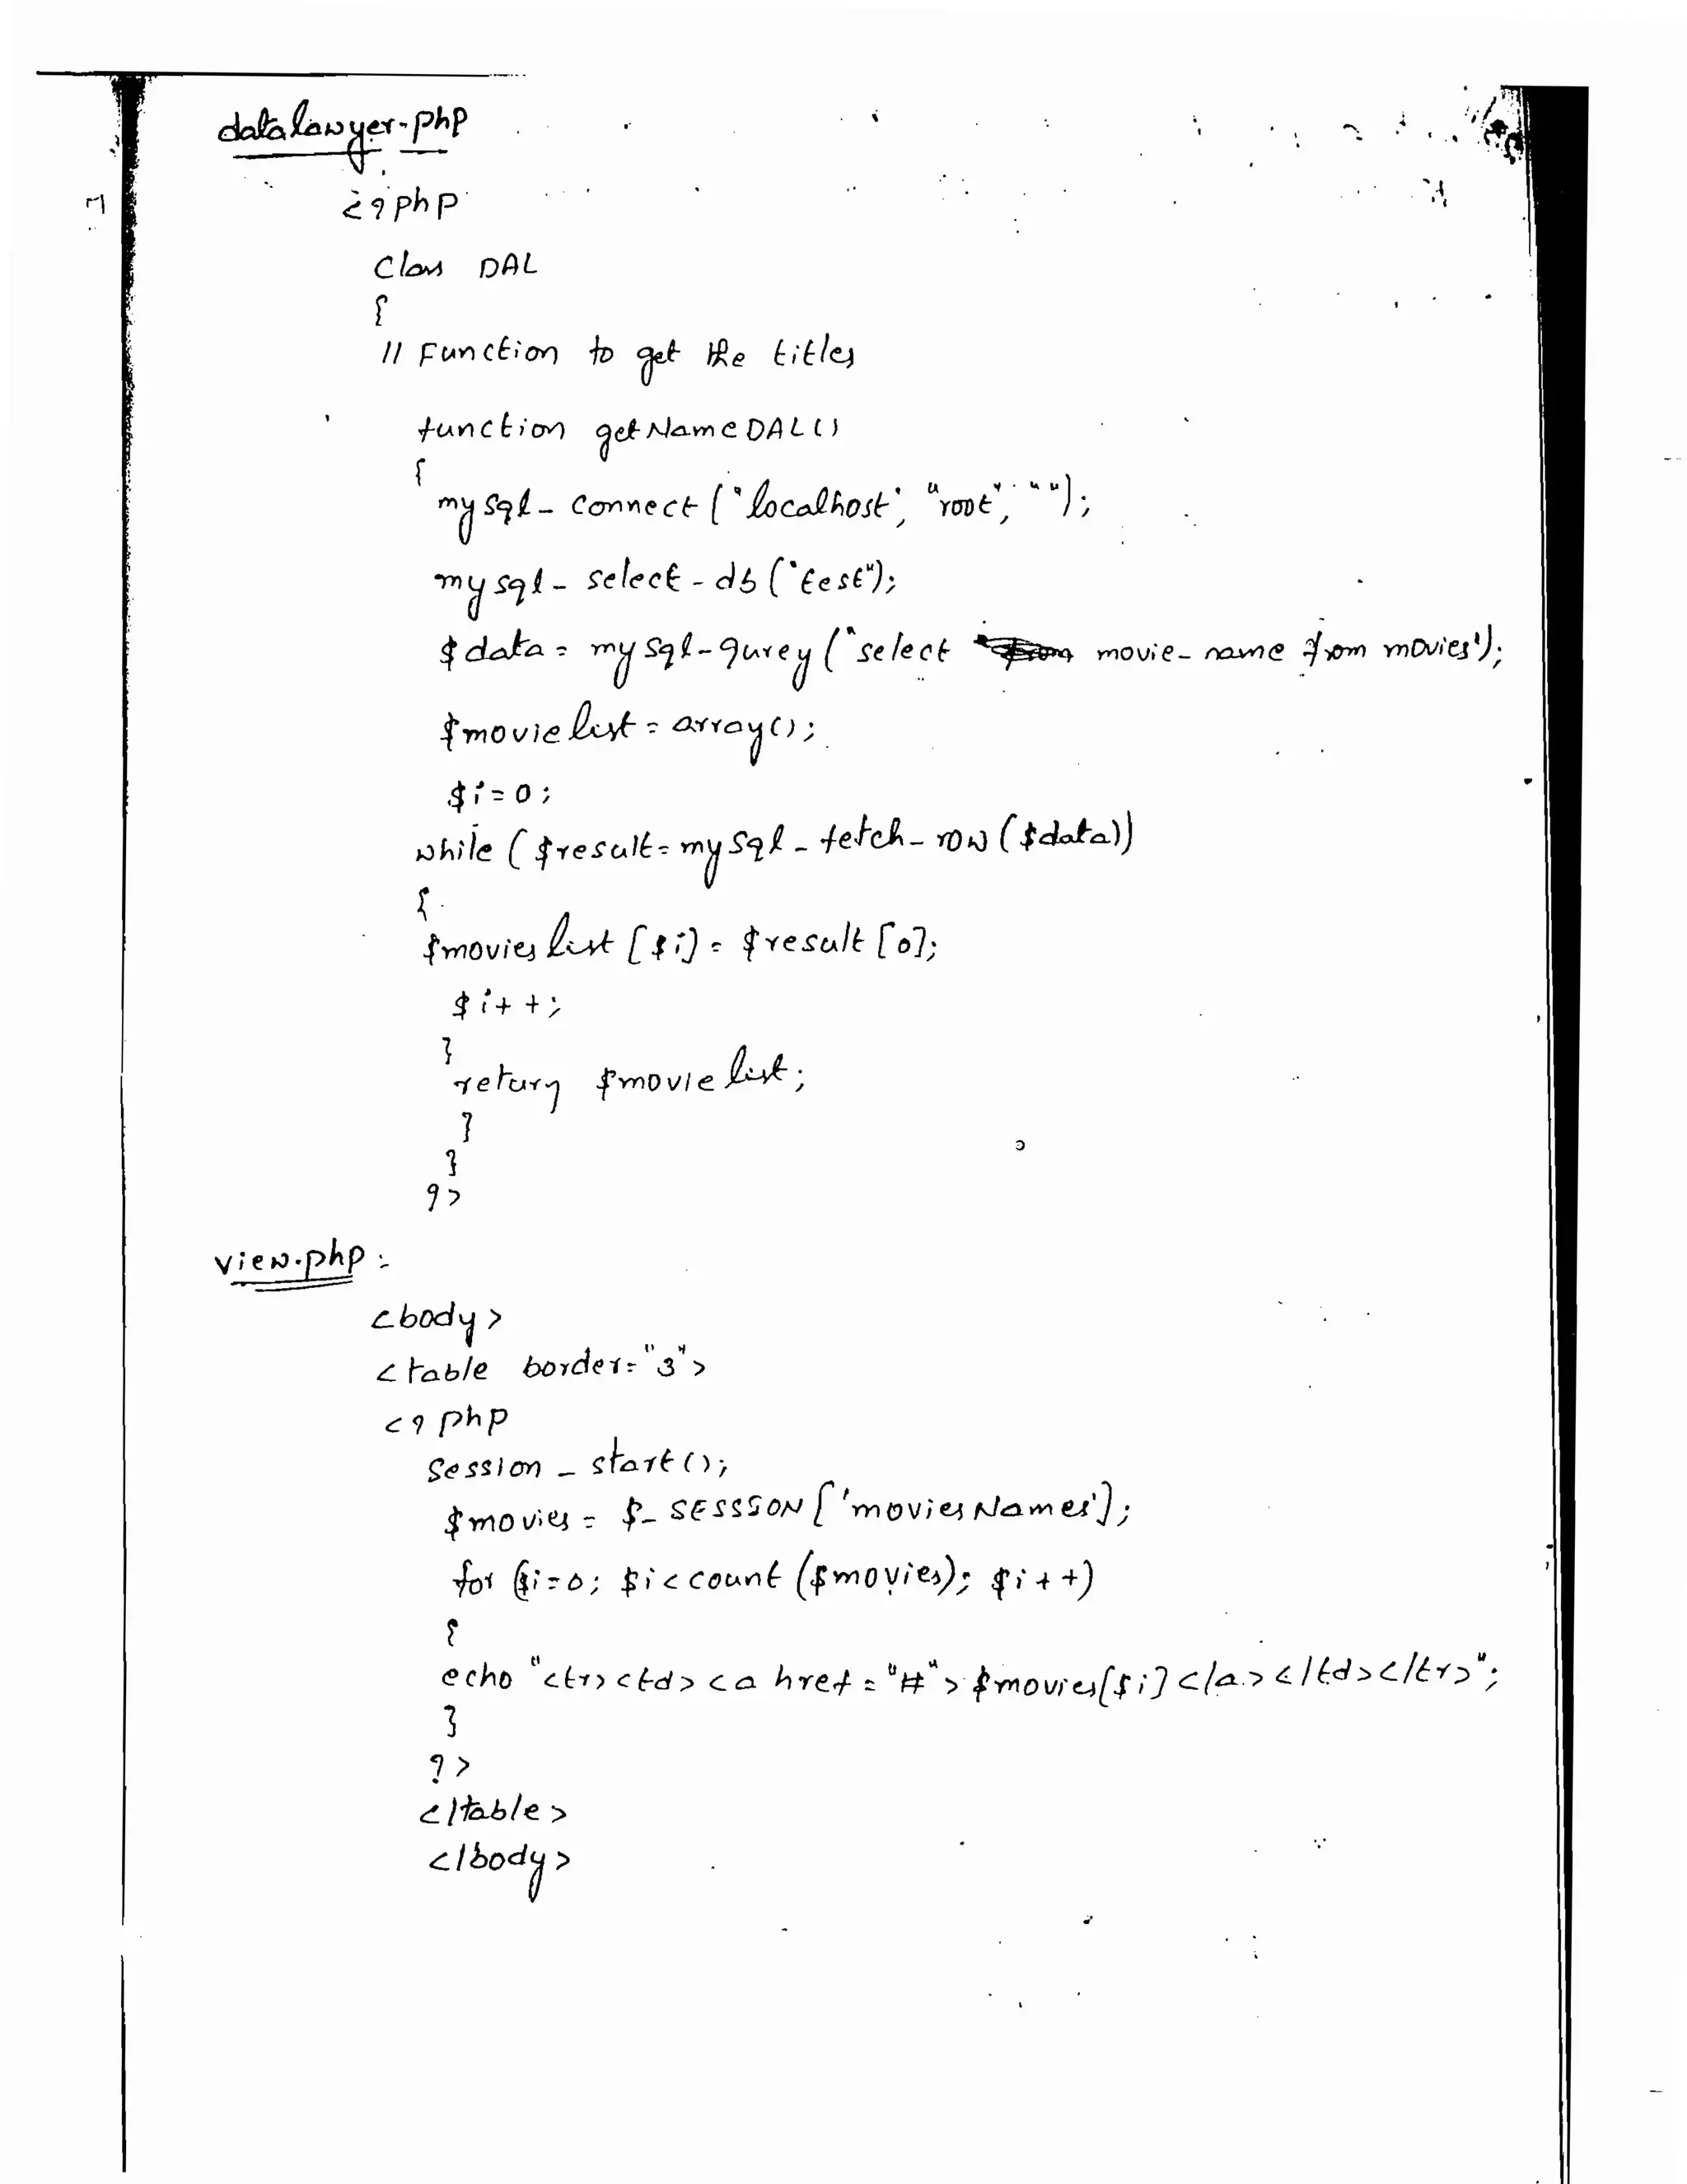 datalawyer.php
<?php
Class DAL
{
// Function to get the titles
function getNameDAL()
{
mysql_connect("localhost", "root", "");
mysql_select_db("test");
$data = mysql_qurey("select movie_name from movies");
$movielist = array();
$i=0;
while ($result=mysql_fetch_row($data))
{
$movieslist[$i] = $result[0];
$i++;
}
return $movielist;
}
}
?>
view.php:
<body>
<table border="3">
<?php
Session_start();
$movies = $_SESSSON['moviesNames'];
for ($i=0; $i<count($movies); $i++)
{
echo "<tr><td><a href="#">$movies[$i]</a></td></tr>";
}
?>
</table>
</body>